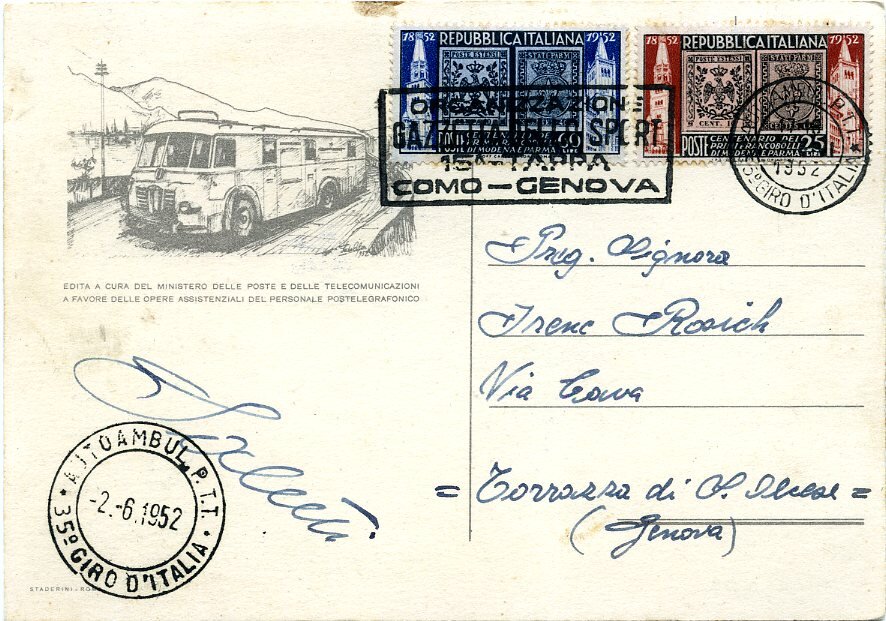 1852 REPUBBLICA ITALIANA 1952
POSTE ESTENSI
STATI PARM.
POSTE CENTENARIO DEI PRIMI FRANCOBOLLI DI MODENA E PARMA 60 LIRE
1852 REPUBBLICA ITALIANA 1952
POSTE ESTENSI
CENT.
STATI PARM.
POSTE CENTENARIO DEI PRIMI FRANCOBOLLI DI MODENA E PARMA 25 LIRE
ORGANIZZAZIONE
GAZZETTA DELLO SPORT
15ª TAPPA
COMO-GENOVA
P.T.T.
1952
35º GIRO D'ITALIA
EDITA A CURA DEL MINISTERO DELLE POSTE E DELLE TELECOMUNICAZIONI
A FAVORE DELLE OPERE ASSISTENZIALI DEL PERSONALE POSTELEGRAFONICO
Preg. Signora
Irene Rosich
Via
= Torrazza di S. Olcese =
(Genova)
AUTOAMBUL. P.T.T.
-2.-6.1952
35º GIRO D'ITALIA
STADERINI-ROMA